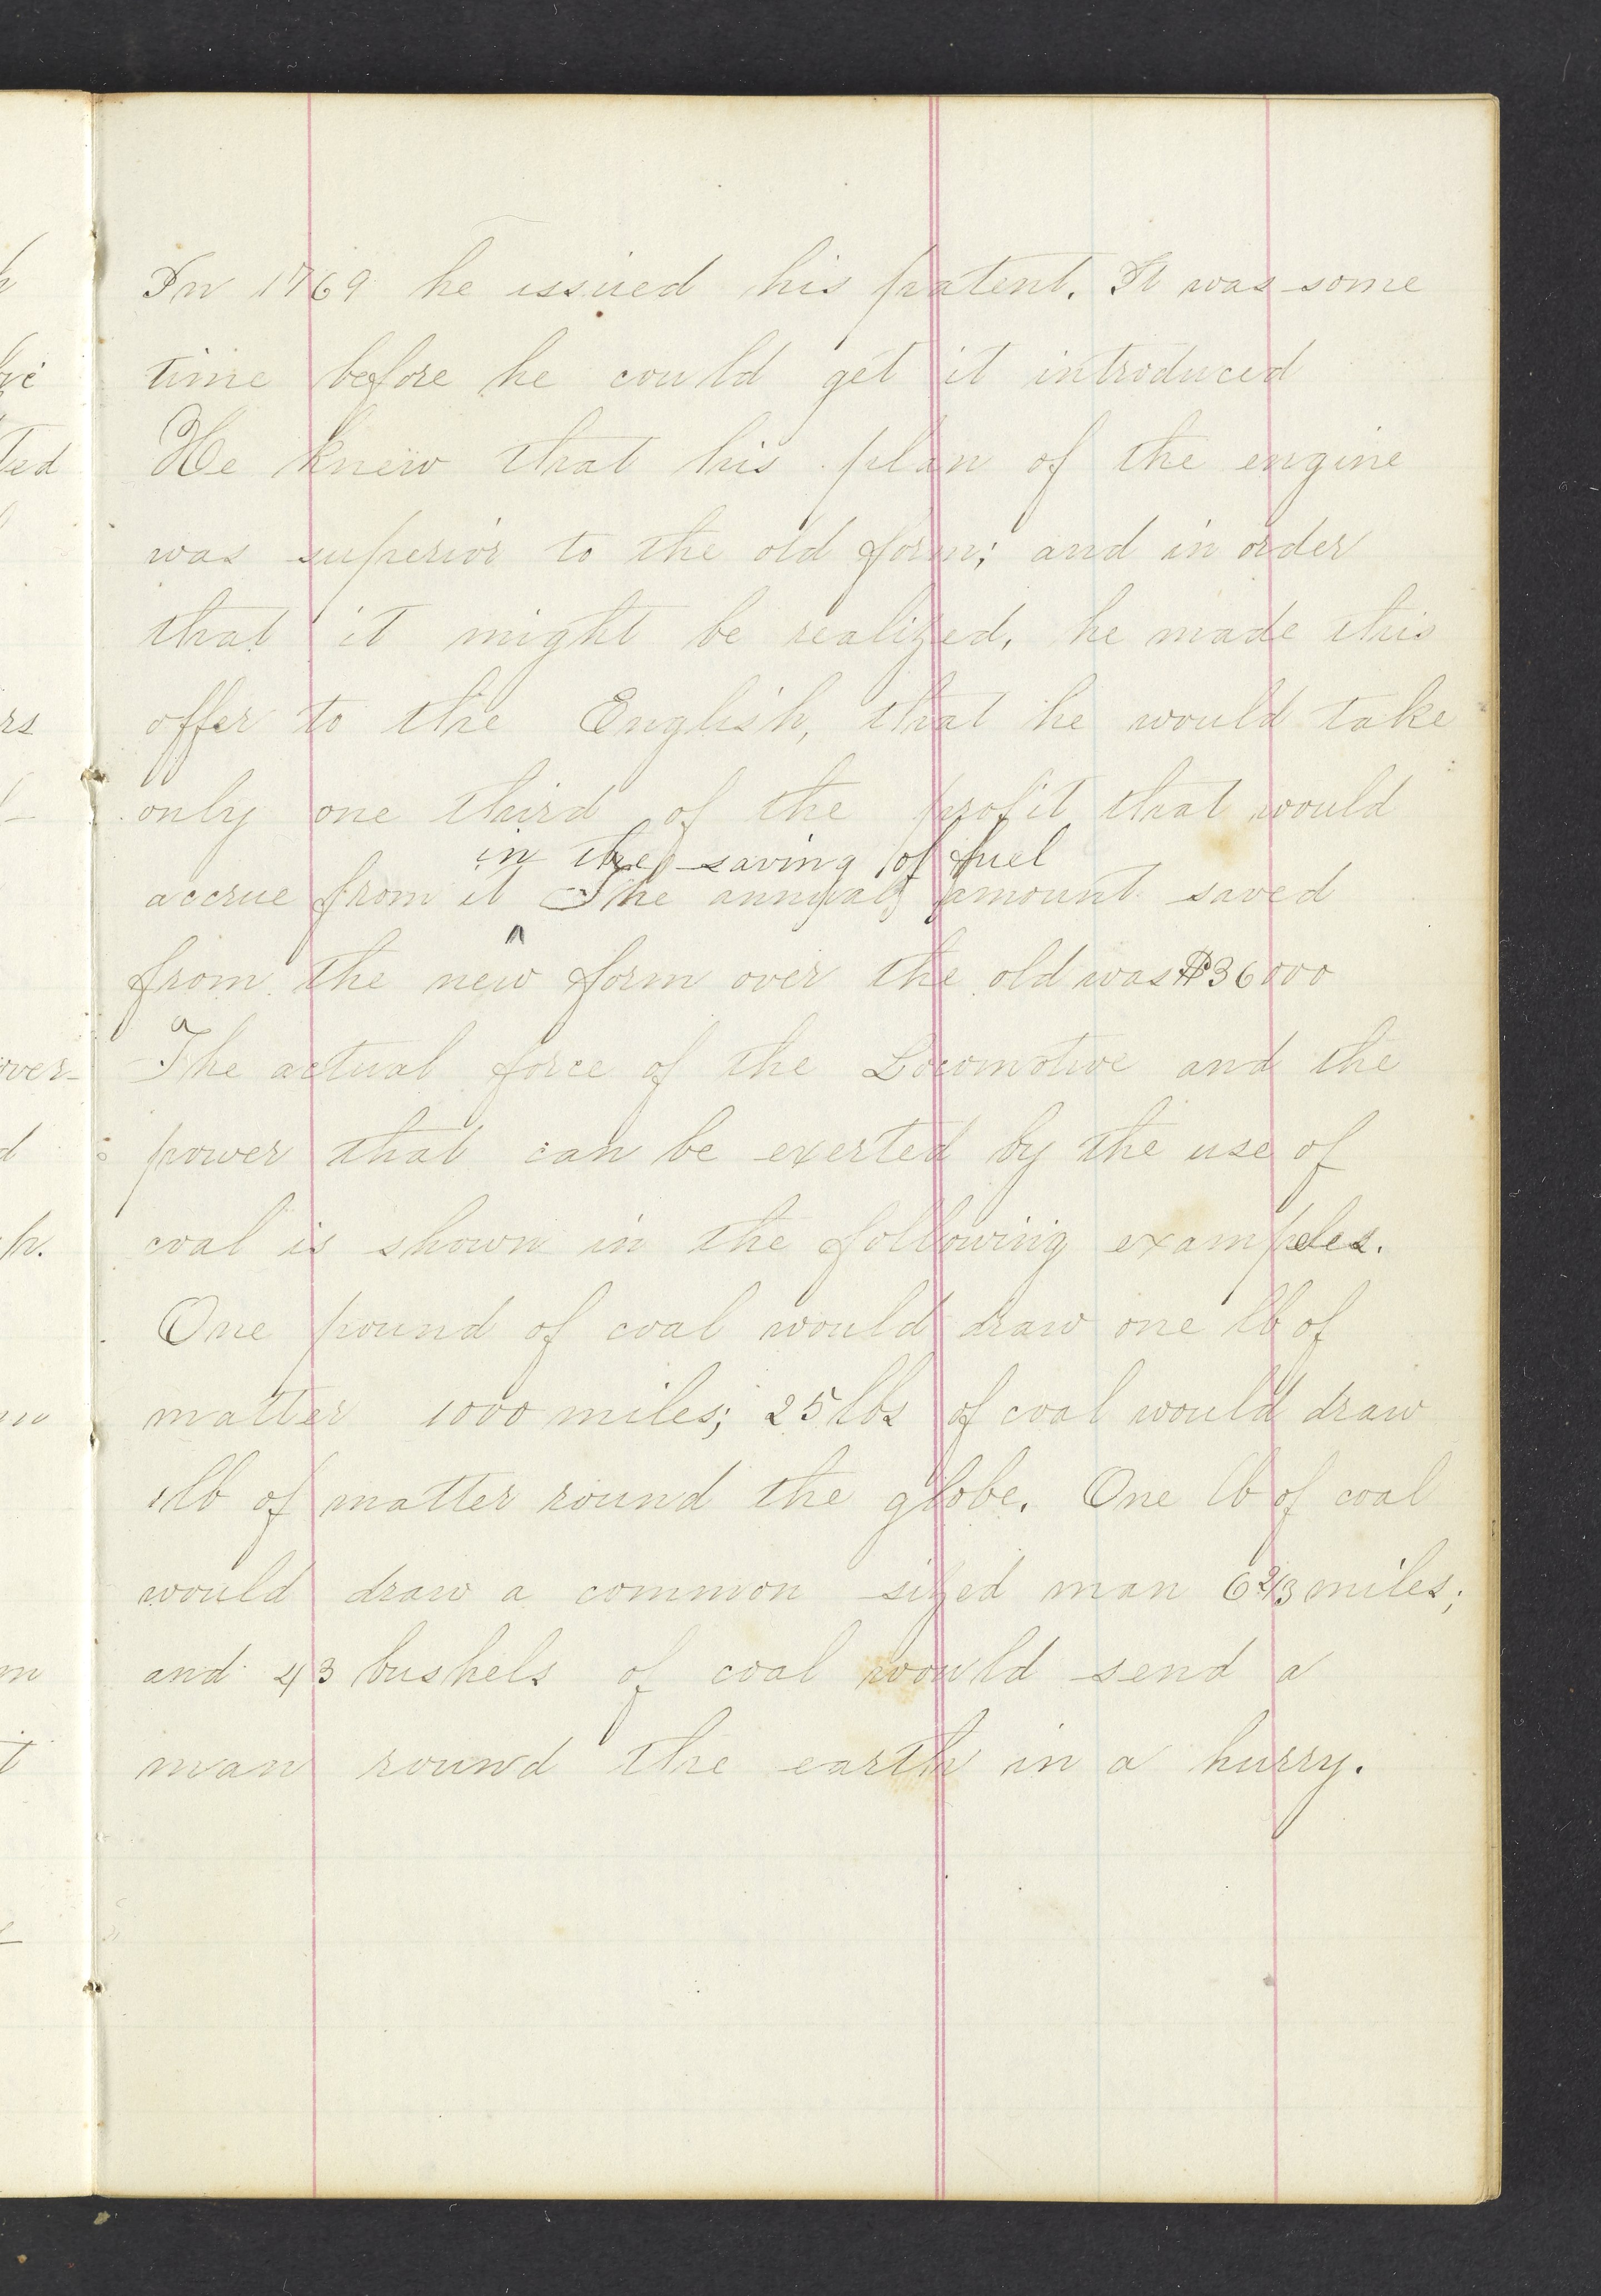 In 1769 he issued his patent. It was some
time before he could get it introduced
He knew that his plan of the engine
was superior to the old form; and in order
that it might be realized, he made this
offer to the English, that he would take
only one third of the profit that would
in the saving of fuel
accrue from it ^ The annual amount saved
from the new form over the old was $36000
The actual force of the Locomotive and the
power that can be exerted by the use of
coal is shown in the following examples.
One pound of coal would draw one lb of
matter 1000 miles; 25 lbs of coal would draw
1 lb of matter round the globe. One lb of coal
would draw a common sized man 6 2/3 miles;
and 43 bushels of coal would send a
man round the earth in a hurry.